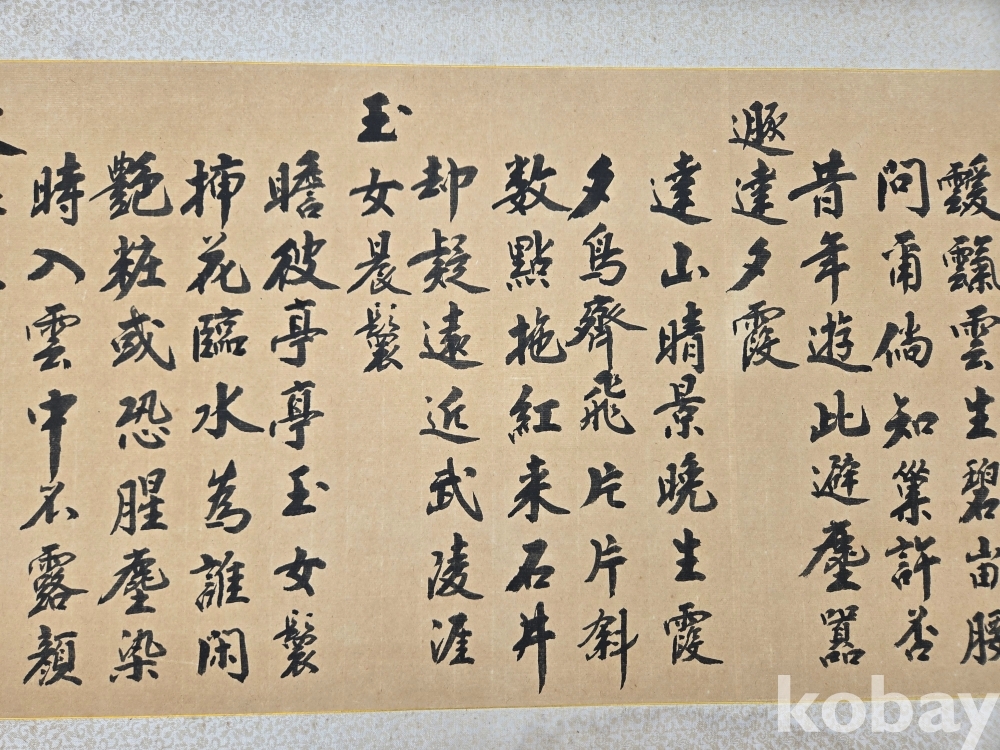 靉靆雲生碧岫腰
問爾倘知巢許否
昔年遊此避塵囂
遯達夕霞
達山晴景晩生霞
夕鳥齊飛片片斜
数點拖紅来石井
却疑遠近武陵涯
玉女晨鬟
瞻彼亭亭玉女鬟
挿花臨水為誰閑
艶粧或恐腥塵染
時入雲中不露顔
kobay